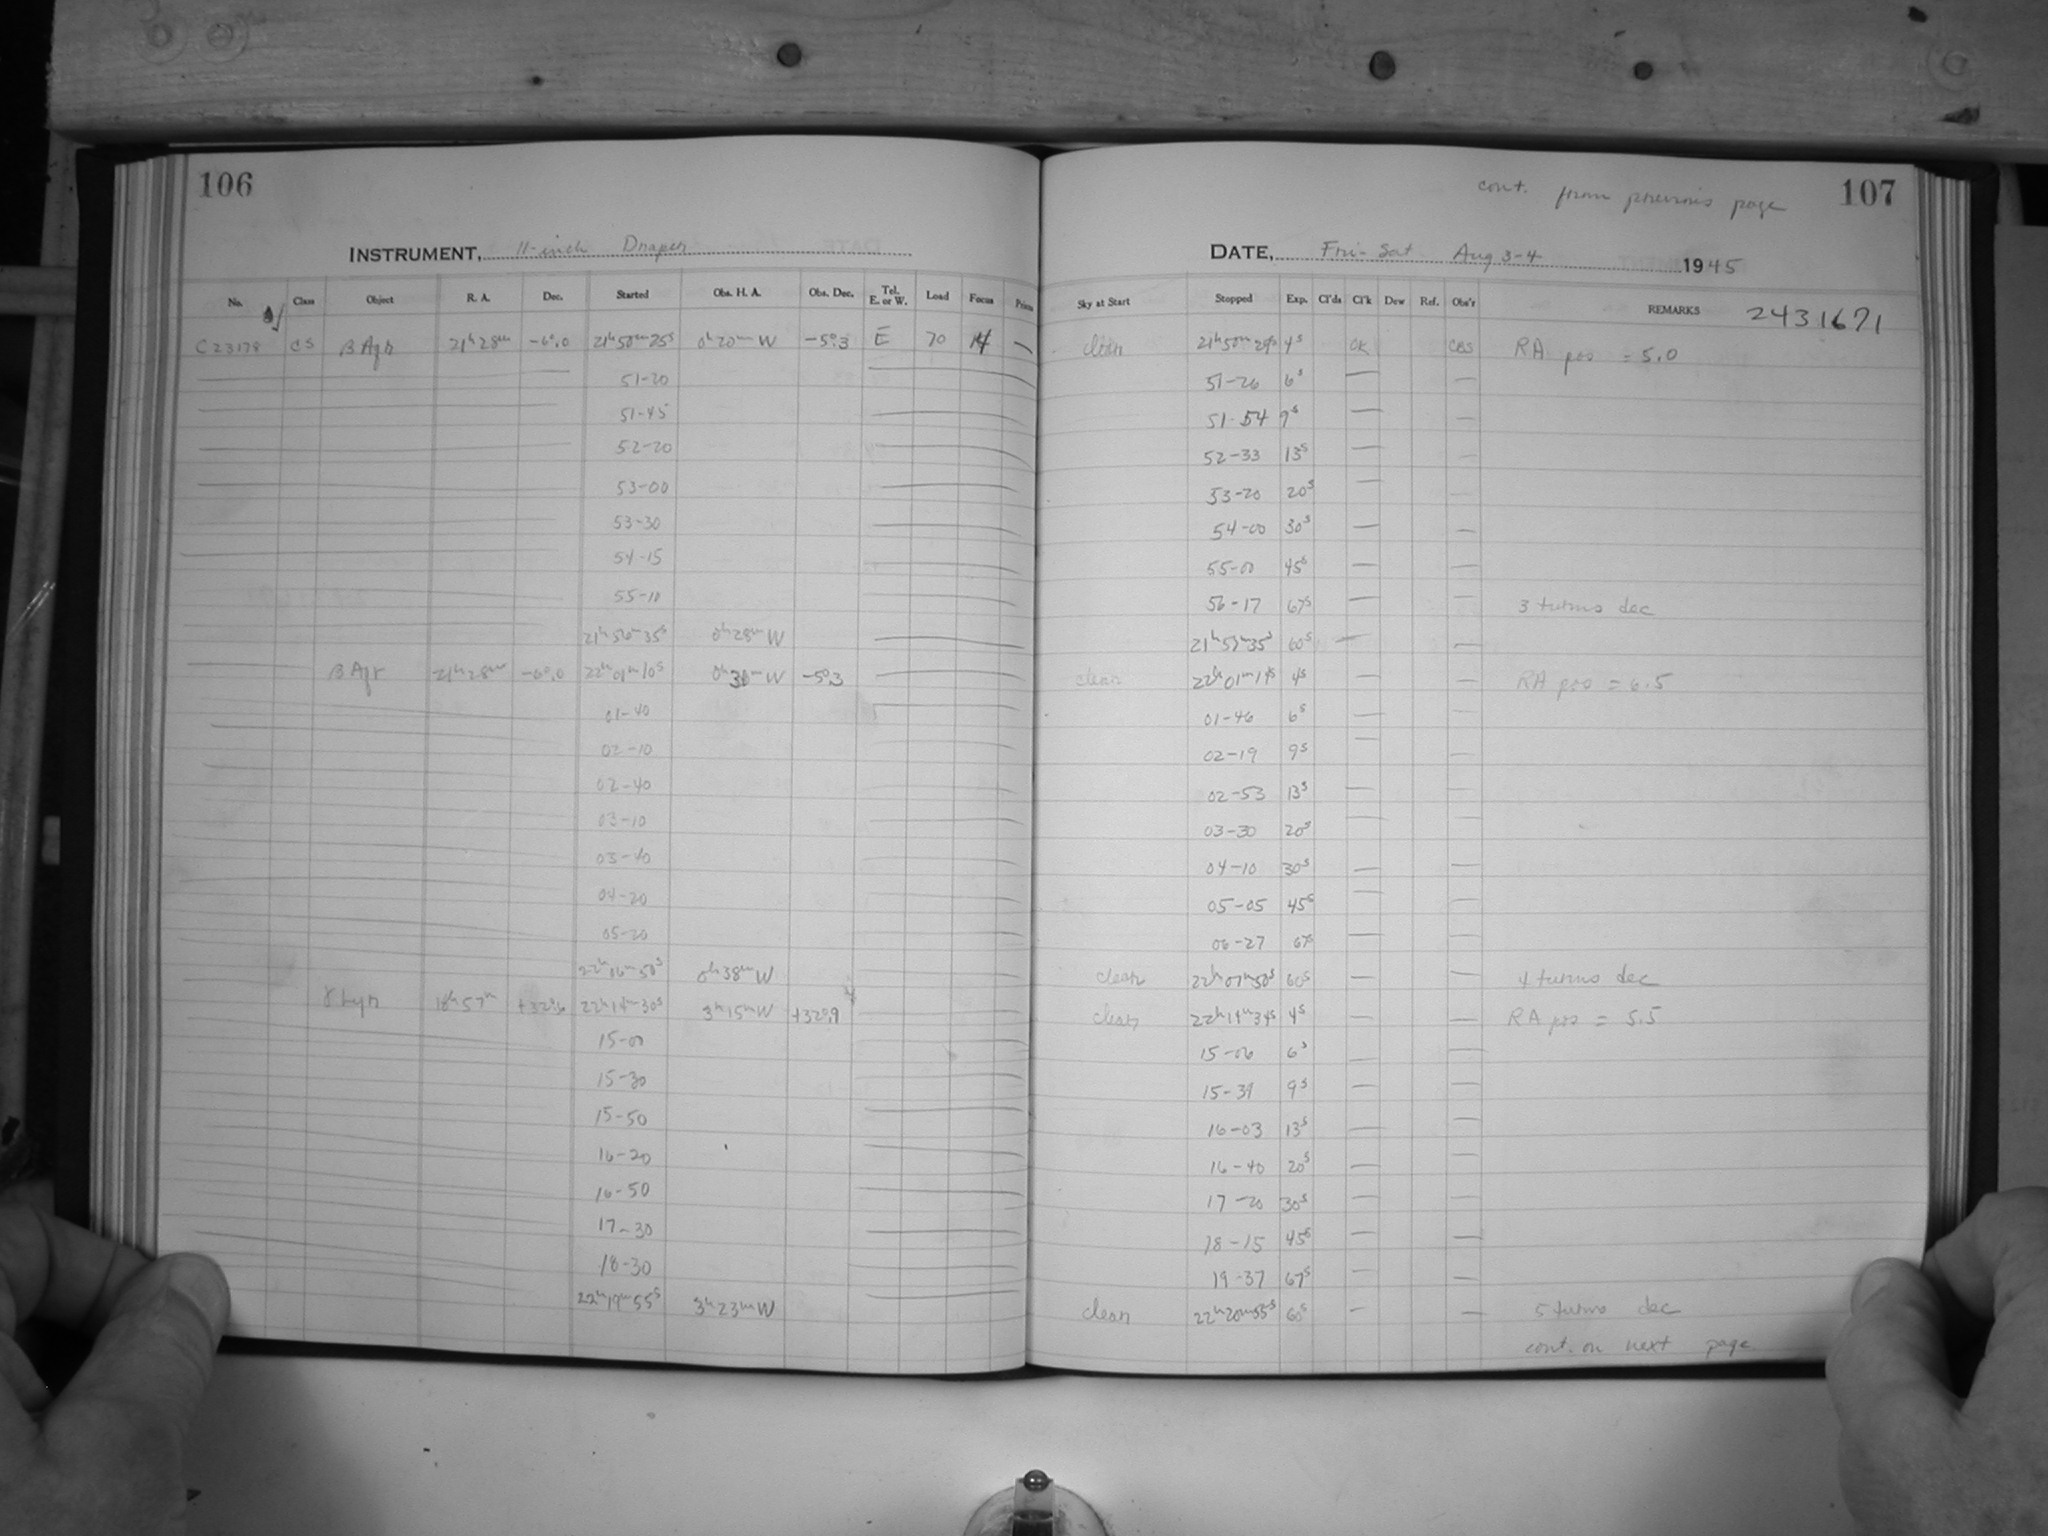 106
INSTRUMENT, 11-inch Draper
No. Class Object R. A. Dec. Started Obs. H. A. Obs. Dec. Tel. E. or W. Load Focus Prism
C 23178 CS β Aqr 21ʰ 28ᵐ -6°.0 21ʰ50ᵐ25ˢ 0ʰ20ᵐ W -5°.3 E 70 14 —
51-20
51-45
52-20
53-00
53-30
54-15
55-10
21ʰ56ᵐ35ˢ 0ʰ28ᵐ W
β Aqr 21ʰ 28ᵐ -6°.0 22ʰ01ᵐ10ˢ 0ʰ30ᵐ W -5°.3
01-40
02-10
02-40
03-10
03-40
04-20
05-20
22ʰ06ᵐ50ˢ 0ʰ38ᵐ W
γ Lyr 18ʰ 57ᵐ +32°.6 22ʰ14ᵐ30ˢ 3ʰ15ᵐ W +32°.9
15-00
15-30
15-50
16-20
16-50
17-30
18-30
22ʰ19ᵐ55ˢ 3ʰ23ᵐ W
cont. from previous page 107
DATE, Fri-Sat Aug 3-4 1945
Sky at Start Stopped Exp. Cl'ds Cl'k Dew Ref. Obs'r REMARKS 2431671
clear 21ʰ50ᵐ29ˢ 4ˢ CK CBS RA pos = 5.0
51-26 6ˢ — —
51-54 9ˢ — —
52-33 13ˢ — —
53-20 20ˢ — —
54-00 30ˢ — —
55-00 45ˢ — —
56-17 67ˢ — — 3 turns dec
21ʰ57ᵐ35ˢ 60ˢ — —
clear 22ʰ01ᵐ14ˢ 4ˢ — — RA pos = 6.5
01-46 6ˢ — —
02-19 9ˢ — —
02-53 13ˢ — —
03-30 20ˢ — —
04-10 30ˢ — —
05-05 45ˢ — —
06-27 67ˢ — —
clear 22ʰ07ᵐ50ˢ 60ˢ — — 4 turns dec
clear 22ʰ14ᵐ34ˢ 4ˢ — — RA pos = 5.5
15-06 6ˢ — —
15-39 9ˢ — —
16-03 13ˢ — —
16-40 20ˢ — —
17-20 30ˢ — —
18-15 45ˢ — —
19-37 67ˢ — —
clear 22ʰ20ᵐ55ˢ 60ˢ — — 5 turns dec
cont. on next page